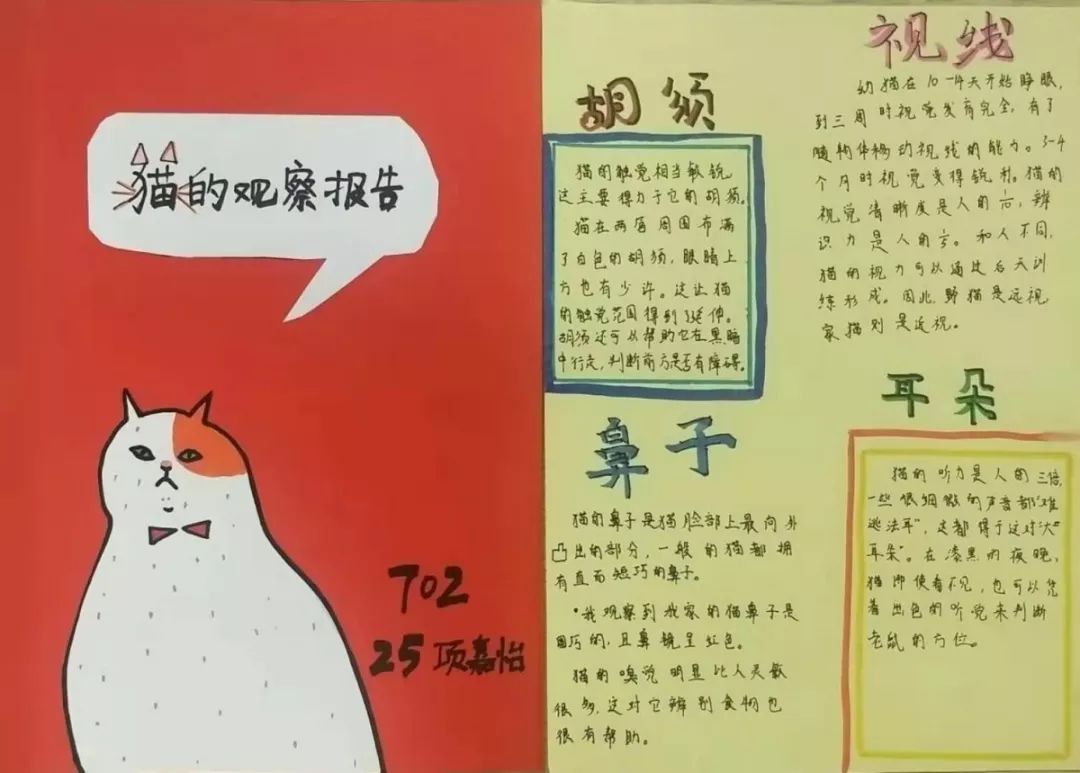 猫的观察报告
702
25 项嘉怡
胡须
猫的触觉相当敏锐
这主要得力于它的胡须。
猫在两唇周围布满
了白色的胡须,眼睛上
方也有少许。这让猫
的触觉范围得到了延伸。
胡须还可以帮助它在黑暗
中行走,判断前方是否有障碍。
鼻子
猫的鼻子是猫脸部上最向外
凸出的部分,一般的猫都拥
有直而短巧的鼻子。
·我观察到我家的猫鼻子是
的,且鼻镜呈红色。
猫的嗅觉明显比人灵敏
很多,这对它辨别食物也
很有帮助。
视线
幼猫在10-14天开始睁眼,
到三周时视觉发育完全,有了
随物体移动视线的能力。3-4
个月时视觉变得锐利。猫的
视觉清晰度是人的,辨
识力是人的。和人不同,
猫的视力可以通过后天训
练形成。因此,野猫是远视,
家猫则是近视。
耳朵
猫的听力是人的三倍,
一些很细微的声音都"难
逃法耳",这都得于这对"大
耳朵"。在漆黑的夜晚,
猫即使看不见,也可以凭
着出色的听觉来判断
老鼠的方位。